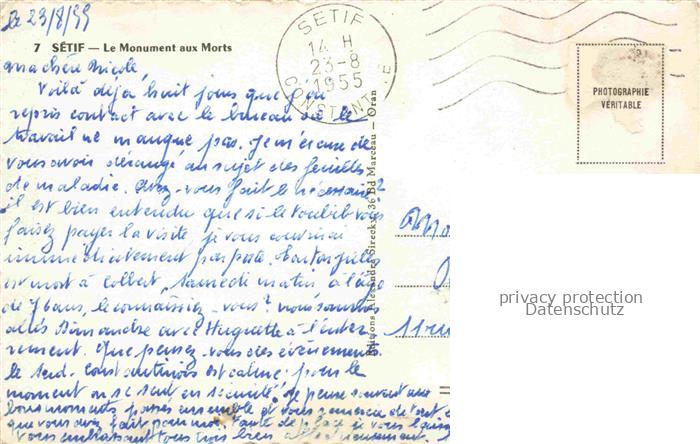 le 23/8/55
7 SÉTIF — Le Monument aux Morts
SETIF
14 H
23-8
1955
CONSTANTINE
PHOTOGRAPHIE
VÉRITABLE
ma chère Nicole,
Voilà déjà huit jours que j'ai
repris contact avec le bureau où le
travail ne manque pas. Je m'excuse de
vous avoir dérangé au sujet des feuilles
de maladie. Avez-vous fait le nécessaire?
il est bien entendu que si le toubib vous
faisez payer la visite je vous couvrirai
immédiatement par poste.
est mort à Colbert, samedi matin à l'âge
de ans, le connaissiez-vous? nous sommes
allés avec Huguette à l'enter
rement. Que pensez-vous des événements
le Sud-Constantinois est calme pour le
moment on se sent en sécurité. Je pense souvent aux
bons moments passés ensemble et vous remercie de tout ce
que vous avez fait pour moi. Faute de place je vous quitte
vous embrassant tous trois bien affectueusement.
Editions Alexandre Sirecky, 36 Bd Marceau — Oran
privacy protection
Datenschutz